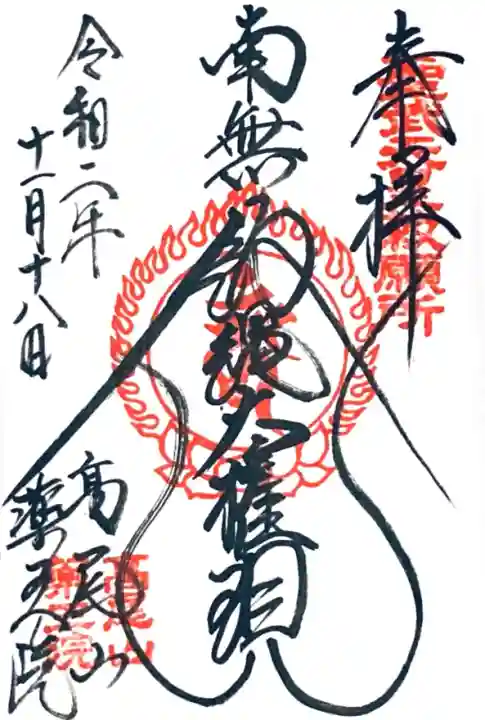 奉拝
聖武天皇勅願所
南無飯縄大権現
高尾山
薬王院
高尾山
薬王院
令和二年
十一月十八日